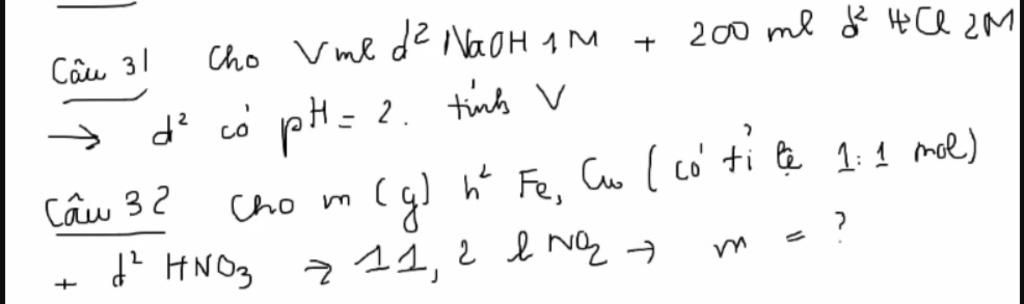 Câu 31 Cho V ml d² NaOH 1M + 200 ml d² HCl 2M
→ d² có pH = 2. tính V
Câu 32 Cho m (g) h² Fe, Cu (có tỉ lệ 1:1 mol)
+ d² HNO₃ → 11,2 l NO₂ → m = ?